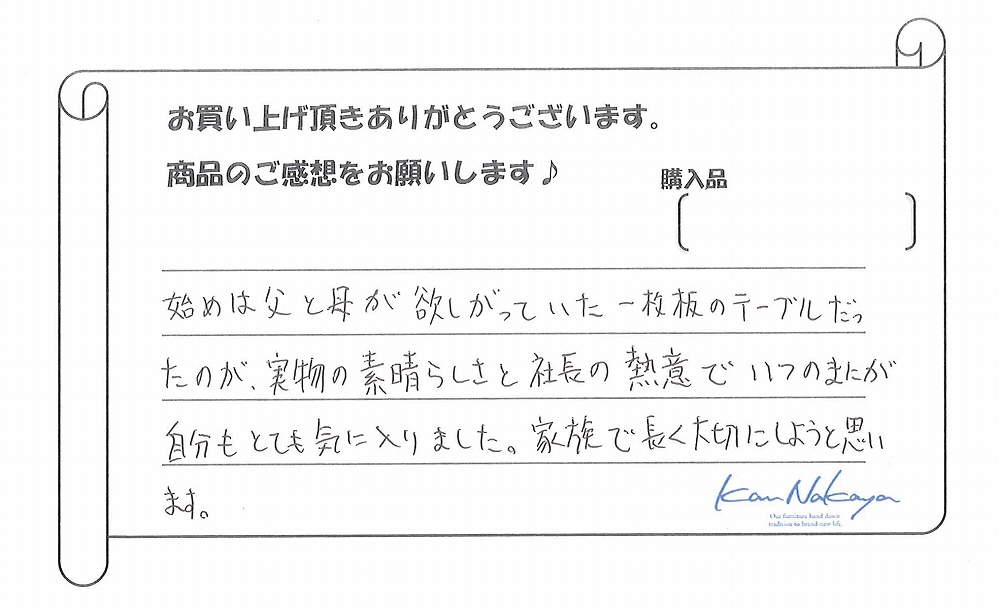 お買い上げ頂きありがとうございます。
商品のご感想をお願いします♪
購入品
始めは父と母が欲しがっていた一枚板のテーブルだっ
たのが、実物の素晴らしさと社長の熱意でいつのまにが
自分もとても気に入りました。家族で長く大切にしようと思い
ます。
Kan Nakaya
Our furniture hand down
tradition to brand-new life.